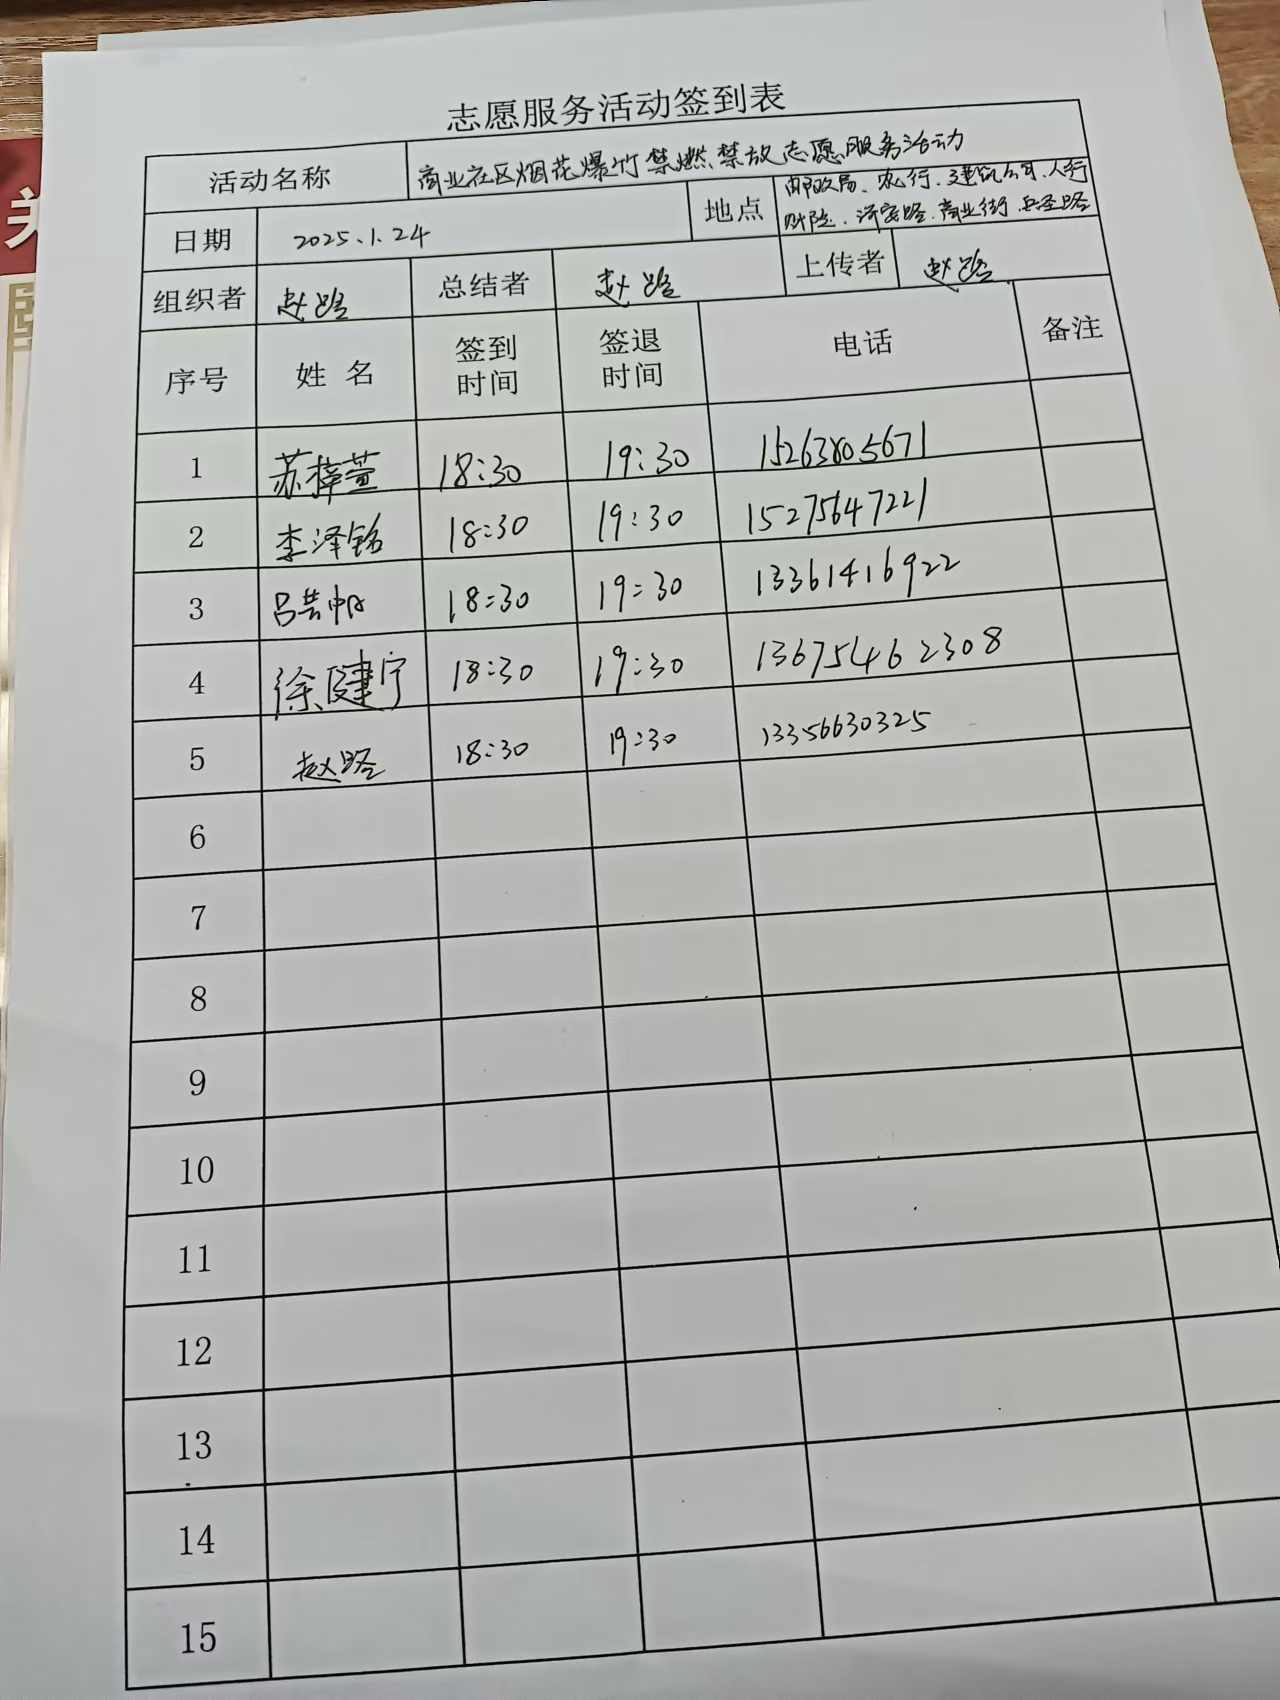 志愿服务活动签到表
活动名称 商业社区烟花爆竹禁燃禁放志愿服务活动
日期 2025.1.24 地点 邮政局、农行、建筑公司、人行
财险、沂蒙路、商业街、兵圣路
组织者 赵路 总结者 赵路 上传者 赵路
序号 姓名 签到时间 签退时间 电话 备注
1 苏梓萱 18:30 19:30 15263805671
2 李泽铭 18:30 19:30 15275647221
3 吕芸帆 18:30 19:30 13361416922
4 徐健宁 18:30 19:30 13675462308
5 赵路 18:30 19:30 13356630325
6
7
8
9
10
11
12
13
14
15